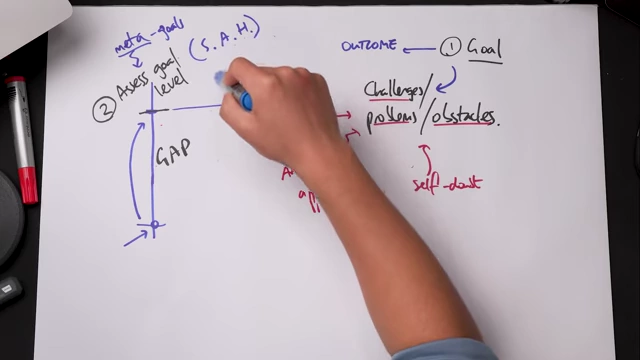 meta-goals
(S. A. H.)
② Assess goal
level
GAP
OUTCOME
① Goal
Challenges/
problems/obstacles.
self-doubt